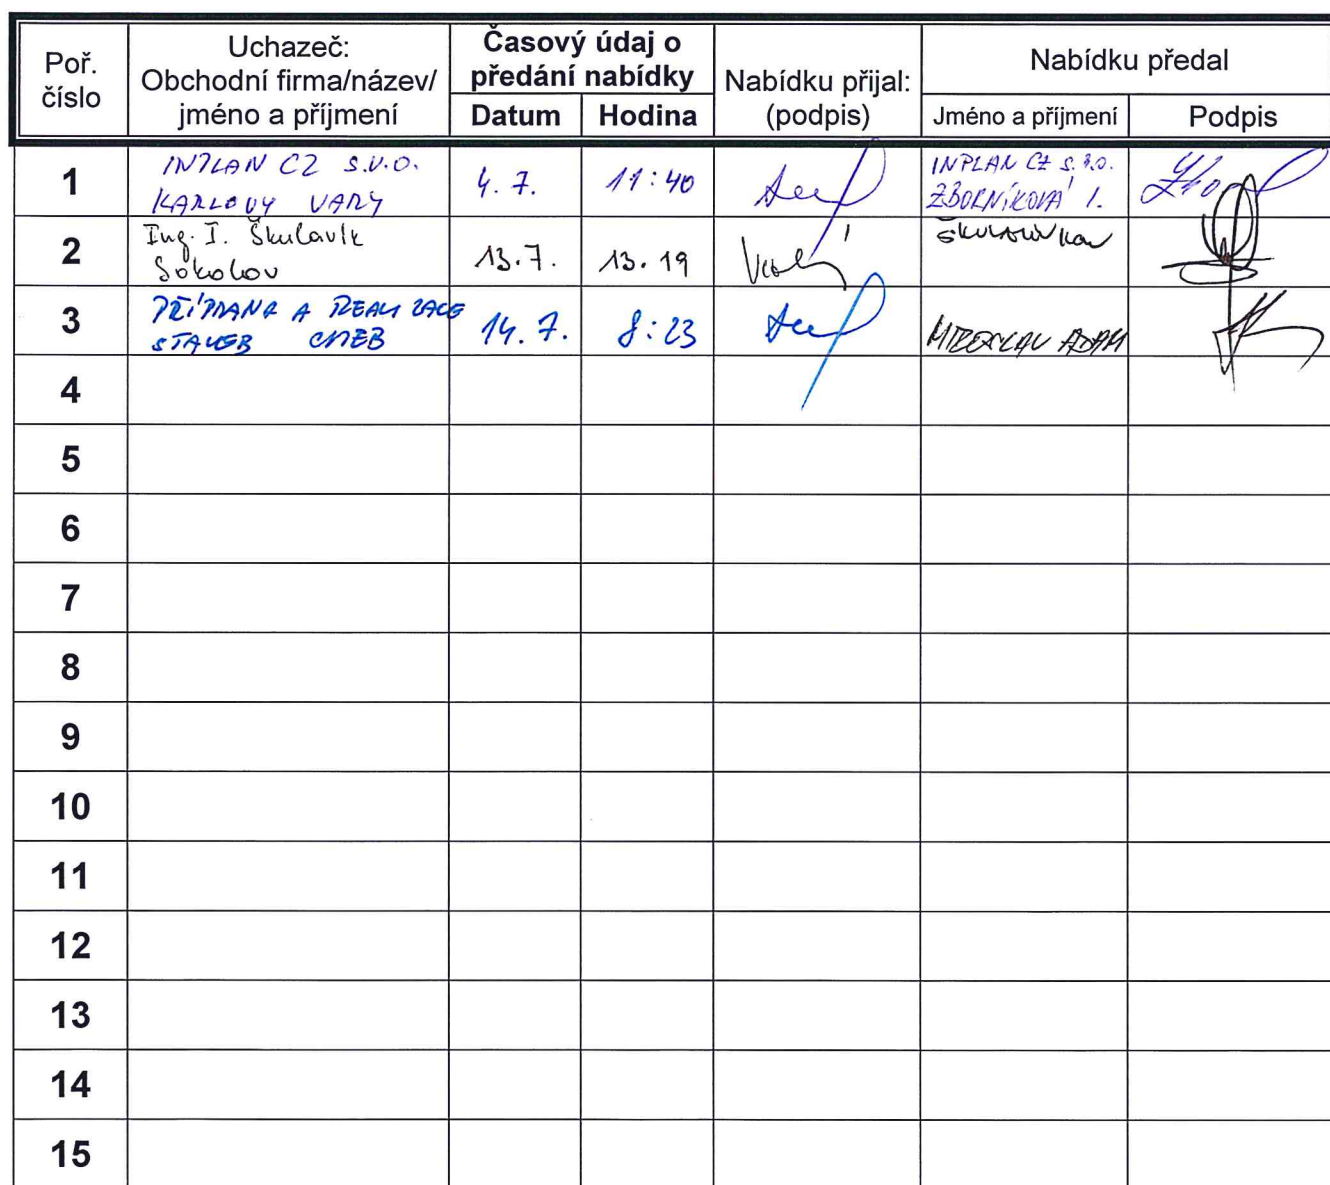 Poř. číslo
Uchazeč:
Obchodní firma/název/
jméno a příjmení
Časový údaj o
předání nabídky
Datum
Hodina
Nabídku přijal:
(podpis)
Nabídku předal
Jméno a příjmení
Podpis
1
INPLAN CZ S.R.O.
KARLOVY VARY
4. 7.
11:40
INPLAN CZ S.R.O.
ZBORNÍKOVÁ I.
2
Ing. I. Škulavik
Sokolov
13.7.
13.19
3
PŘÍPRAVA A REALIZACE
STAVEB CHEB
14. 7.
8:23
MIROSLAV ADAM
4
5
6
7
8
9
10
11
12
13
14
15